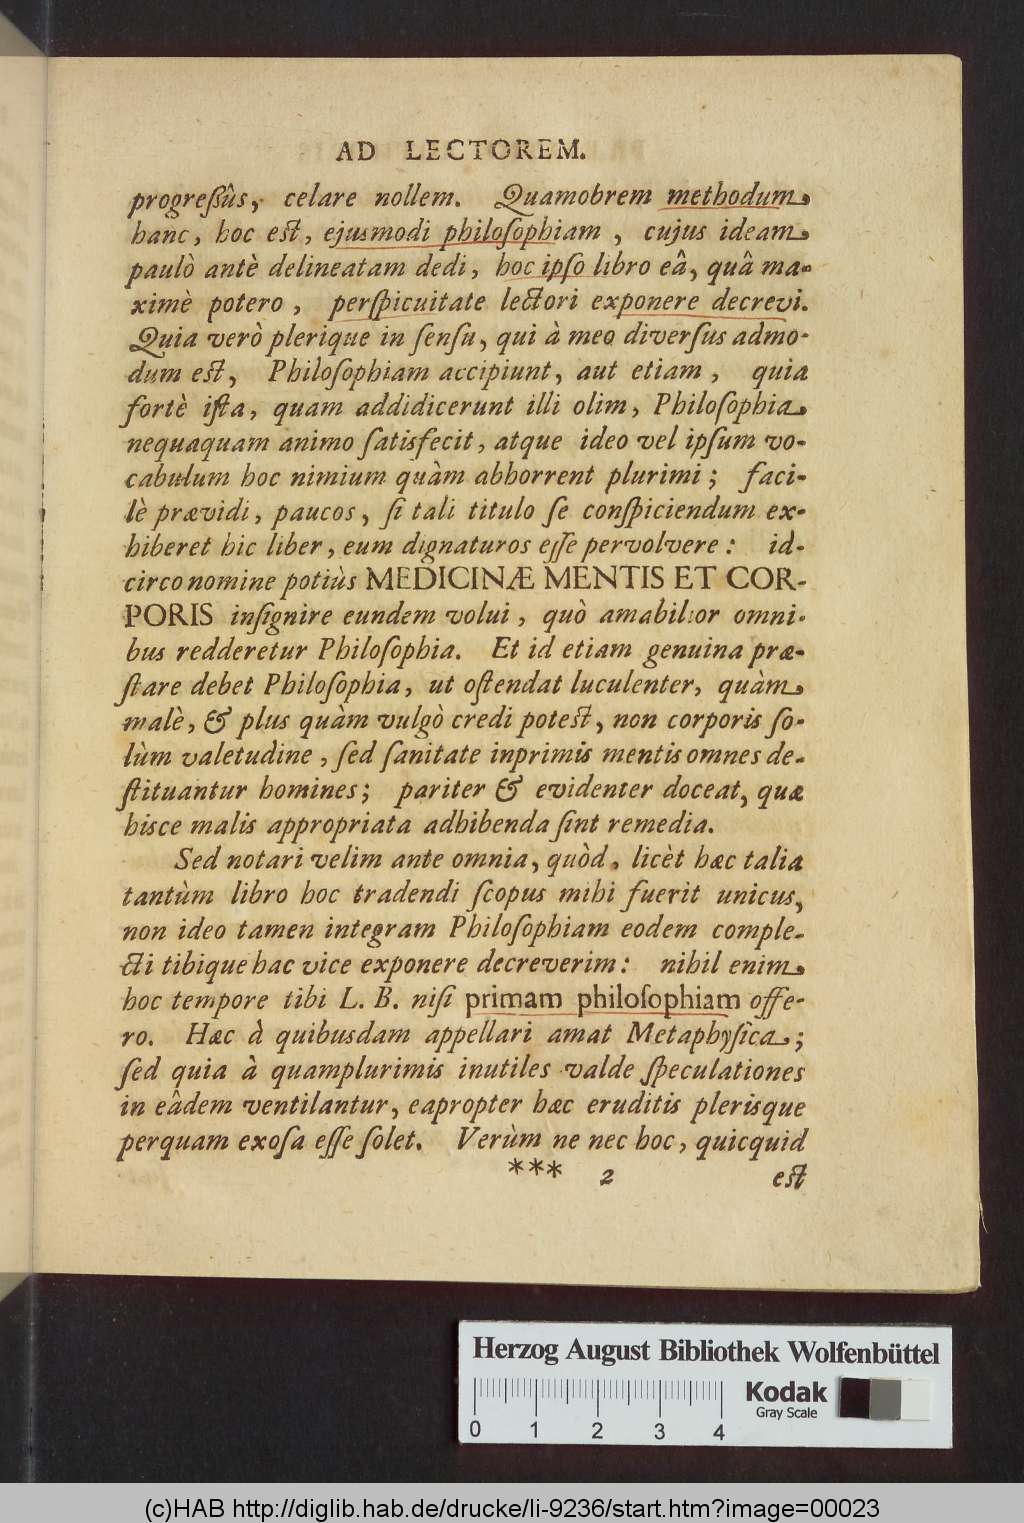 AD LECTOREM.
progreſsûs, celare nollem. Quamobrem methodum
hanc, hoc est, ejusmodi philoſophiam , cujus ideam
paulò antè delineatam dedi, hoc ipſo libro eâ, quâ ma-
ximè potero , perſpicuitate lectori exponere decrevi.
Quia verò plerique in ſenſu, qui à meo diverſus admo-
dum est, Philoſophiam accipiunt, aut etiam , quia
fortè iſta, quam addidicerunt illi olim, Philoſophia
nequaquam animo ſatisfecit, atque ideo vel ipſum vo-
cabulum hoc nimium quàm abhorrent plurimi; faci-
lè prævidi, paucos, ſi tali titulo ſe conſpiciendum ex-
hiberet hic liber, eum dignaturos eſſe pervolvere: id-
circo nomine potiùs MEDICINÆ MENTIS ET COR-
PORIS inſignire eundem volui, quò amabilior omni-
bus redderetur Philoſophia. Et id etiam genuina præ-
ſtare debet Philoſophia, ut oſtendat luculenter, quàm
malè, & plus quàm vulgò credi potest, non corporis ſo-
lùm valetudine, ſed ſanitate inprimis mentis omnes de-
ſtituantur homines; pariter & evidenter doceat, quæ
hisce malis appropriata adhibenda ſint remedia.
Sed notari velim ante omnia, quòd, licèt hæc talia
tantùm libro hoc tradendi ſcopus mihi fuerit unicus,
non ideo tamen integram Philoſophiam eodem comple-
cti tibique hac vice exponere decreverim: nihil enim
hoc tempore tibi L. B. niſi primam philoſophiam offe-
ro. Hæc à quibusdam appellari amat Metaphyſica;
ſed quia à quamplurimis inutiles valde ſpeculationes
in eâdem ventilantur, eapropter hæc eruditis plerisque
perquam exoſa eſſe ſolet. Verùm ne nec hoc, quicquid
*** 2 est
Herzog August Bibliothek Wolfenbüttel
Kodak
Gray Scale
0 1 2 3 4
(c)HAB http://diglib.hab.de/drucke/li-9236/start.htm?image=00023